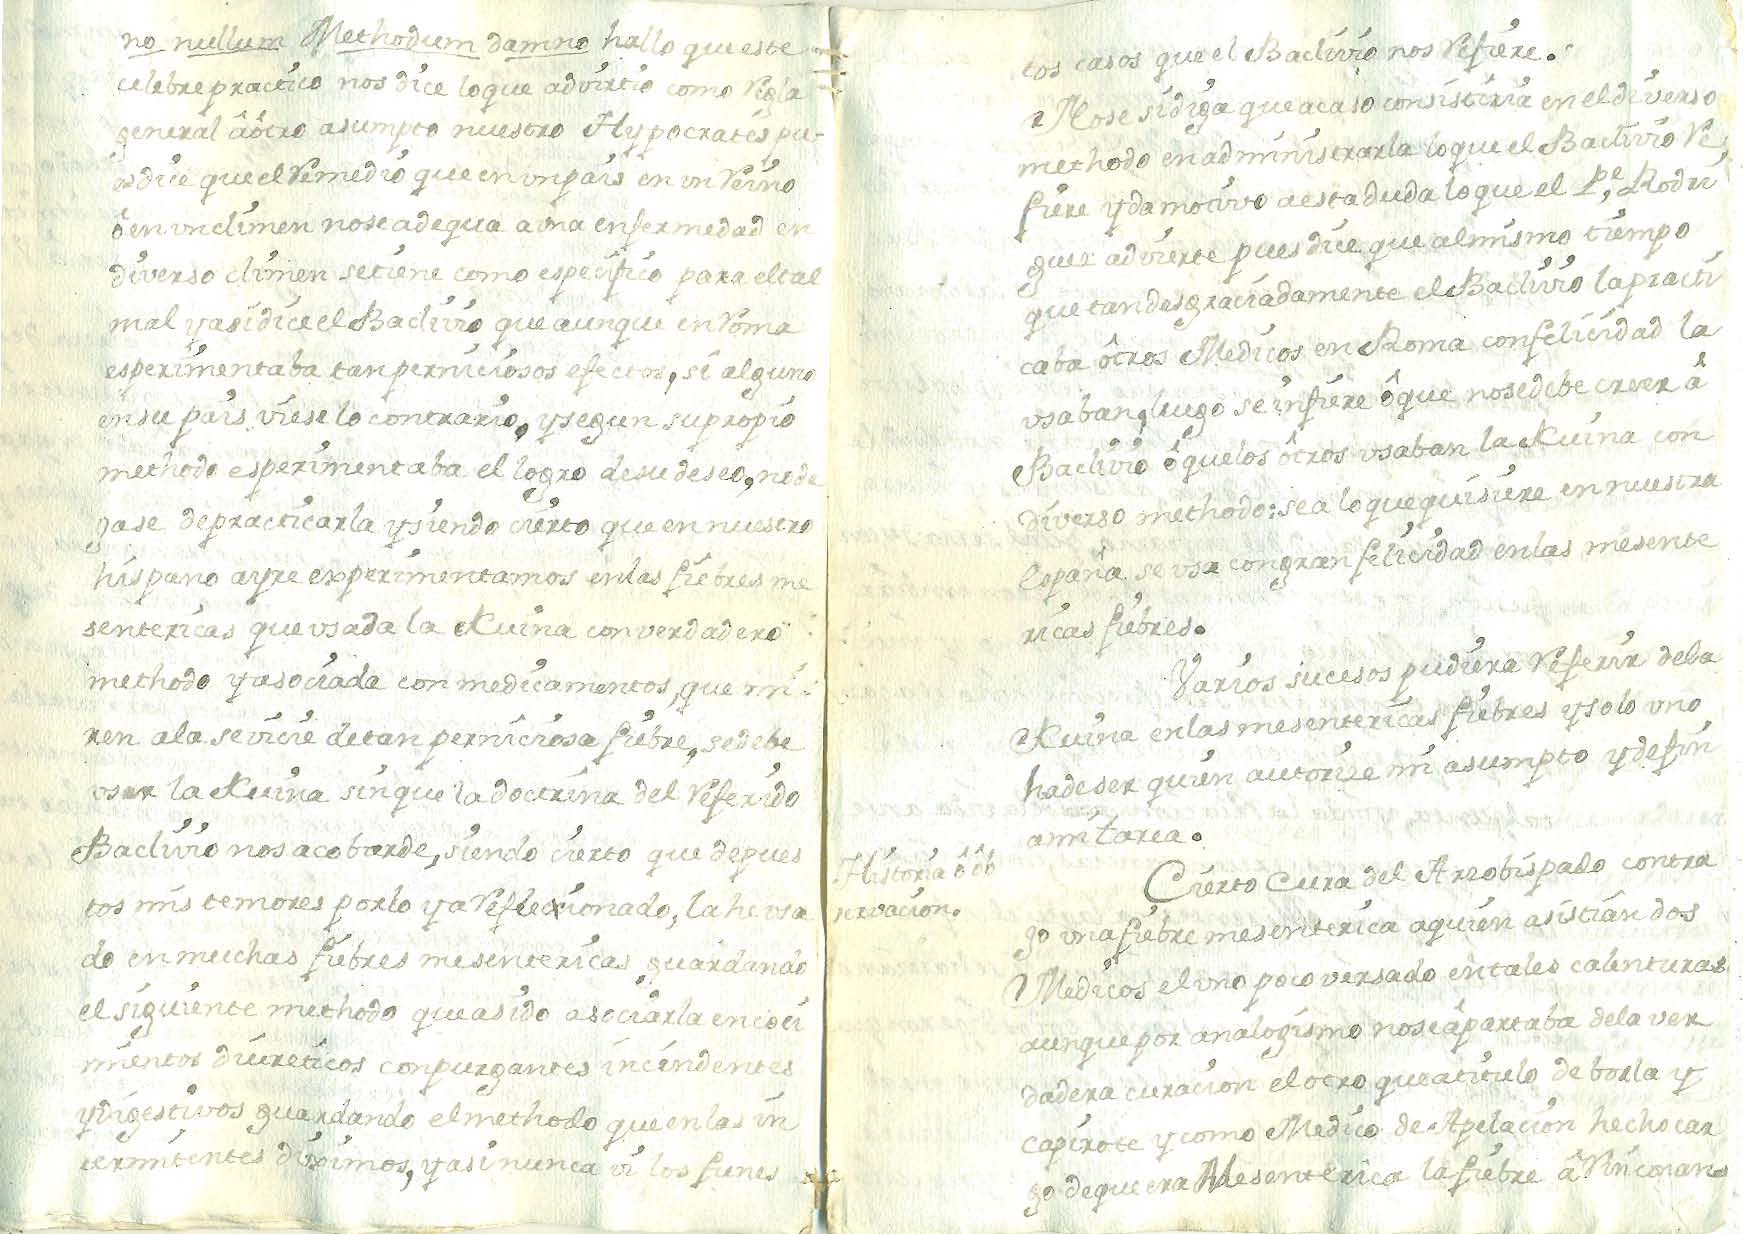 no nullum Methodum damno hallo que este
celebre practico nos dice lo que advirtio como regla
general â ôtro asumpto nuestro Hypocrates pu-
es dice que el remedio que en un pais en un reino
ô en un climen nose adequa a una enfermedad en
diverso climen setiene como especifico para el tal
mal y asi dice el Baclivio que aunque en roma
esperimentaba tan perniciosos efectos, si alguno
en su pais viese lo contrario, y segun su propio
methodo esperimentaba el logro de su deseo, no de
gase de practicarla y siendo cierto que en nuestro
hispano ayre experimentamos en las fiebres me
sentericas que usada la Kuina con verdadero
methodo y asociada con medicamentos, que mi
ren a la sevicie de tan perniciosa fiebre, se debe
usar la Kuina sin que la doctrina del referido
Baclivio nos acobarde, siendo cierto que depues
tos mis temores por lo ya reflexionado, la he usa
do en muchas fiebres mesentericas guardando
el siguiente methodo que asido asociarla en coci
mientos diureticos con purgantes incindentes
y digestivos guardando el methodo que en las in
termitentes diximos, y asi nunca vi los funes
tos casos que el Baclivio nos refiere.
Nose si diga que acaso consistiria en el diverso
methodo en administrarla lo que el Baclivio re
fiere y da motivo a esta duda lo que el P.e Rodri
guez advierte pues dice que al mismo tiempo
que tan desgraciadamente el Baclivio la practi
caba ôtros Medicos en Roma con felicidad la
usaban, luego se infiere ô que nose debe creer â
Baclivio ô que los ôtros usaban la Kuina con
diverso methodo: sea lo que quisiere en nuestra
España se usa con gran felicidad en las mesente
ricas fiebres.
Varios sucesos pudiera referir de la
Kuina en las mesentericas fiebres y solo uno
ha de ser quien autorize mi asumpto y de fin
a mi tarea.
Historia ô ôb
servacion.
Cierto Cura del Arzobispado contra
go una fiebre mesenterica a quien asistian dos
Medicos el uno poco versado en tales calenturas
aunque por analogismo nose âpartaba de la ver
dadera curacion el otro que a titulo de borla y
capirote y como Medico de Apelacion hecho car
go de que era Mesenterica la fiebre â